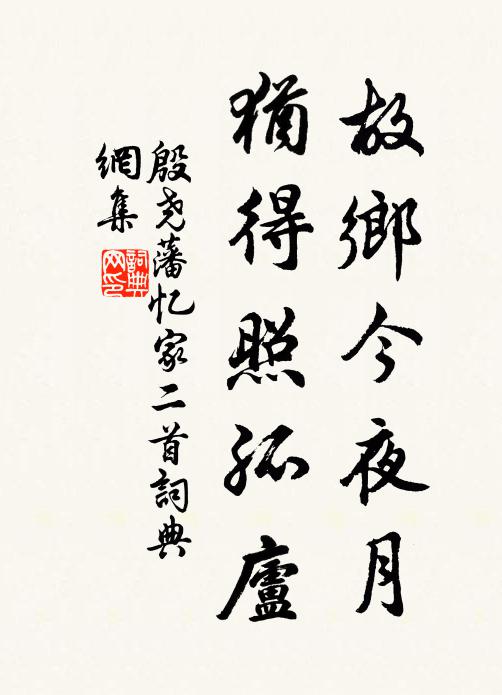 故鄉今夜月
猶得照孤廬
殷尧藩忆家二首詞典
網集
詞典网印